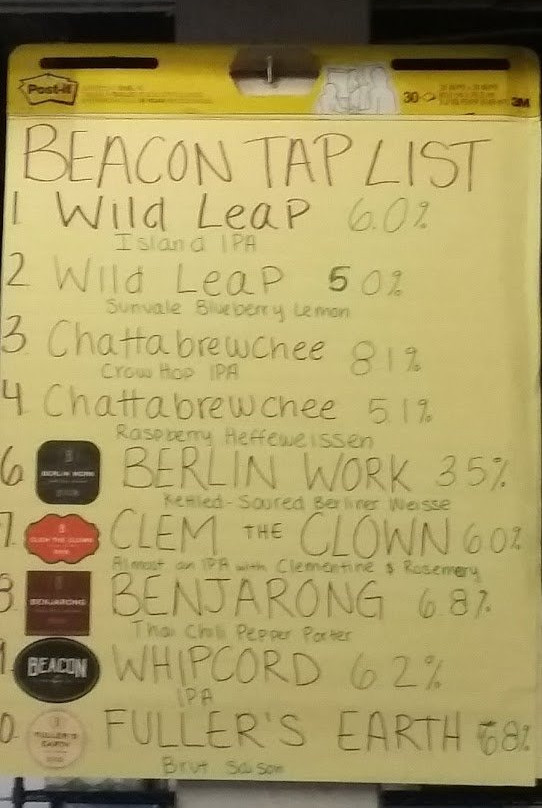 Post-it
30
3M
BEACON TAP LIST
1 Wild Leap 6.0%
Island IPA
2 Wild Leap 5.0%
Sunvale Blueberry Lemon
3 Chattabrewchee 8.1%
Crow Hop IPA
4 Chattabrewchee 5.1%
Raspberry Heffeweissen
6 BERLIN WORK 3.5%
Kettled-Soured Berliner Weisse
7. CLEM THE CLOWN 6.0%
Almost an IPA with Clementine & Rosemery
8. BENJARONG 6.8%
BENJARONG
Thai Chili Pepper Porter
BEACON WHIPCORD 6.2%
IPA
0. FULLER'S EARTH 6.8%
FULLER'S EARTH
Brut Saison